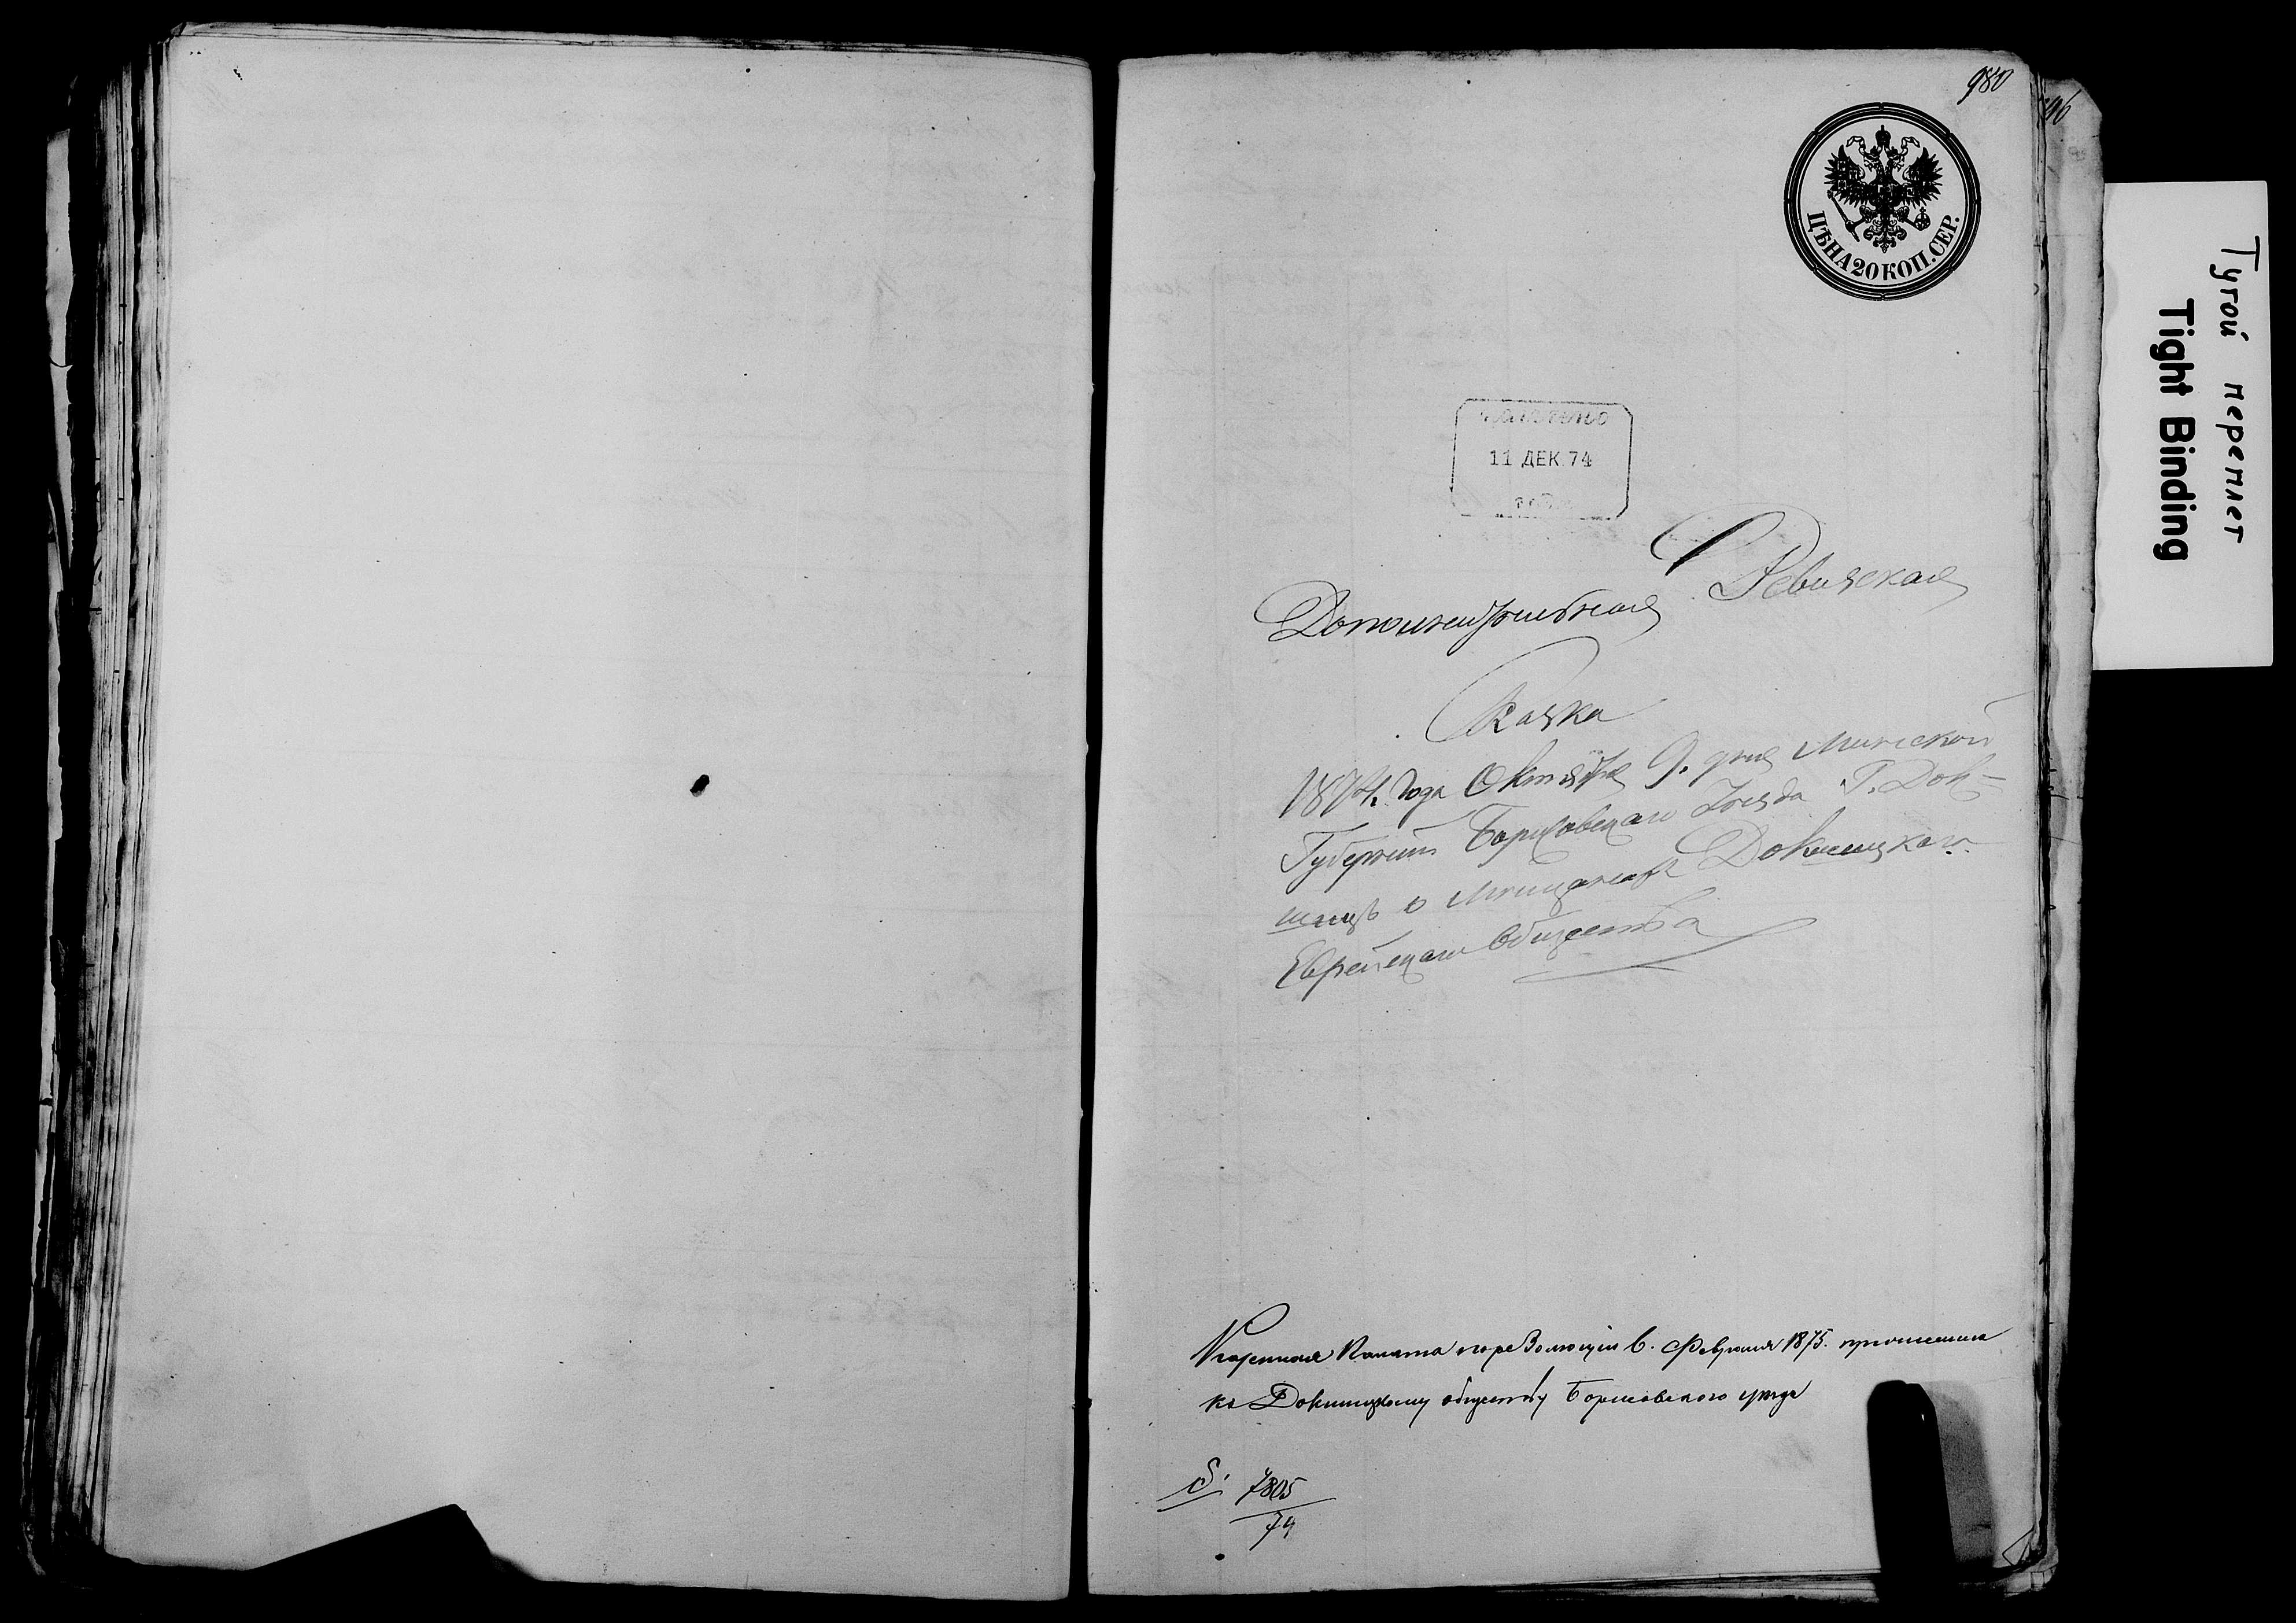 980
96
ЦѢНА 20 КОП. СЕР.
11 ДЕК 74
Ревизская
Дополнительная
Сказка
1874. Года Октября 9. дня Минской
Губернии Борисовскаго Уезда Г. Док-
шицъ о мещанахъ Докшицкаго
Еврейскаго Общества
Казенная Палата по резолюции 6. Февраля 1875. причислила
къ Докшицкому обществу Борисовского уезда
7805
74
Тугой переплет
Tight Binding